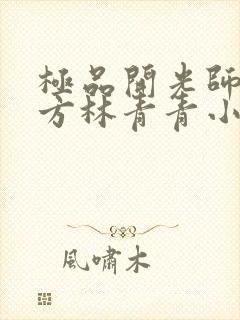 極品開光師
方林青青小
風嘯木